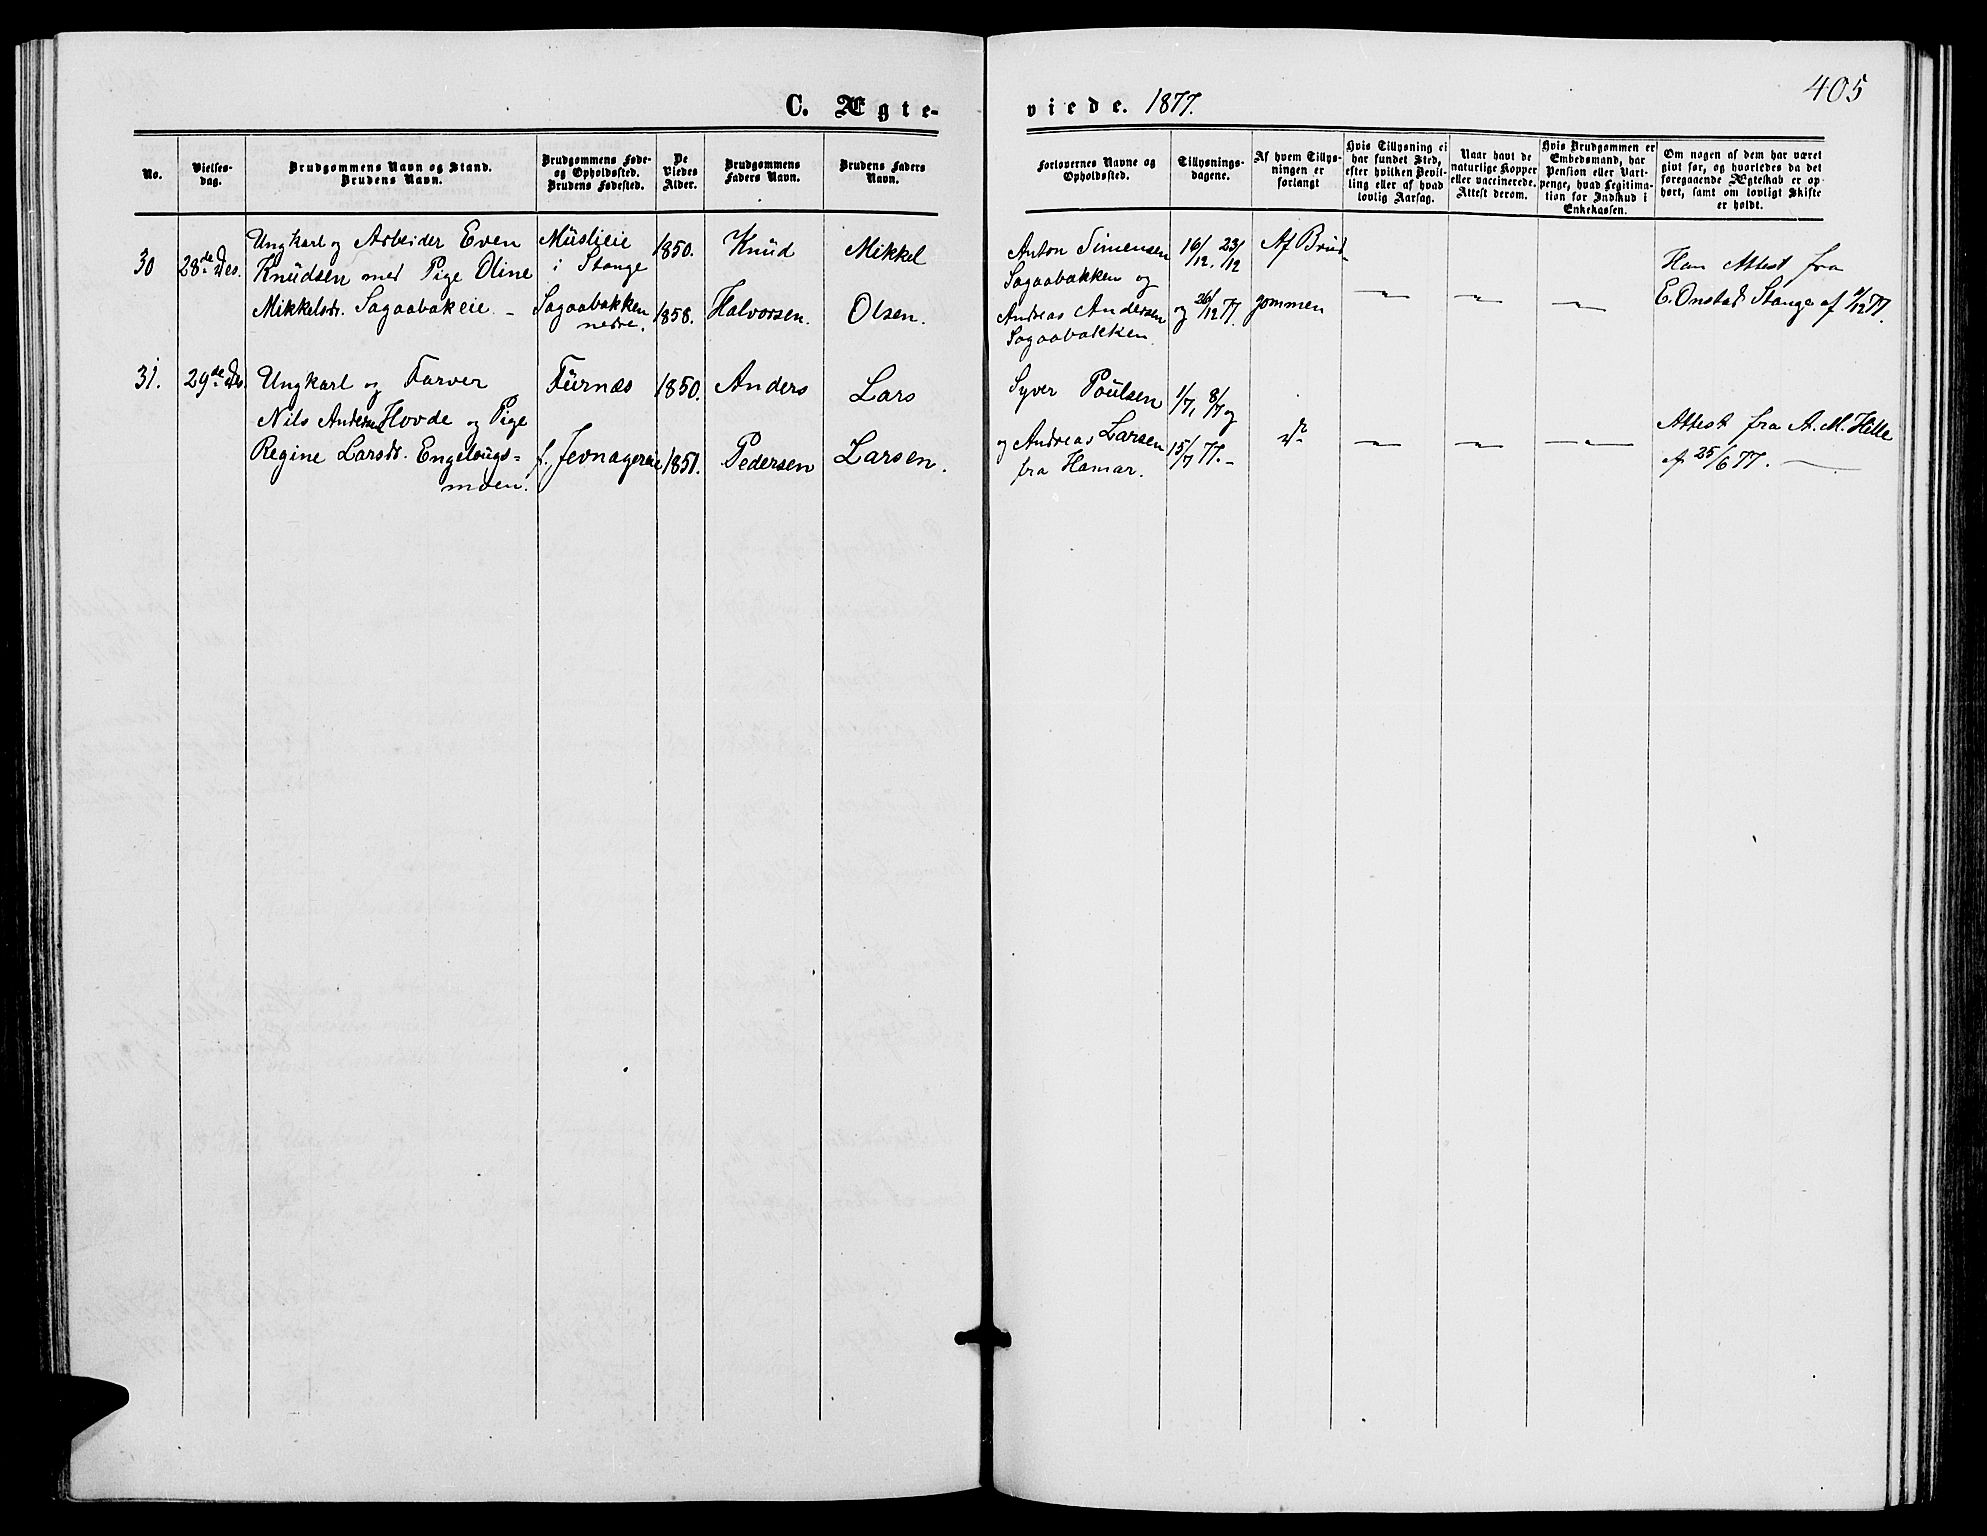 405
C. Ægte-
viede. 1877.
No.
Vielses-
dag.
Brudgommens Navn og Stand.
Brudens Navn.
Brudgommens Føde-
og Opholdssted.
Brudens Fødested.
De
Viedes
Alder.
Brudgommens
Faders Navn.
Brudens Faders
Navn.
Forlovernes Navne og
Opholdssted.
Tillysnings-
dagene.
Af hvem Tillys-
ningen er
forlangt
Hvis Tillysning ei
har fundet Sted,
efter hvilken Bevil-
ling eller af hvad
lovlig Aarsag.
Naar havt de
naturlige Kopper
eller vaccinerede.
Attest derom.
Hvis Brudgommen er
Embedsmand, har
Pension eller Vart-
penge, hvad Legitima-
tion for Indskud i
Enkekassen.
Om nogen af dem har været
givt før, og hvorledes da det
foregaaende Ægteskab er op-
hørt, samt om lovligt Skifte
er holdt.
30
28de Des.
Ungkarl og Arbeider Even
Knudsen med Pige Oline
Mikkelsdr. Sagaabakeie -
Muslieie
i Stange
Sagaabakken
nedre.
1850.
1858.
Knud
Halvorsen.
Mikkel
Olsen.
Anton Simensen
Sagaabakken og
Andreas Andersen
Sagaabakken.
16/12. 23/12
og 26/12 77.
Af Brud-
gommen
Han Attest fra
E. Onstad Stange af /12 77.
31.
29de Des.
Ungkarl og Farver
Nils Andersen Hovde og Pige
Regine Larsdr. Engelougs=
moen.
Furnæs
f. Jevnagereie
1850.
1851.
Anders
Pedersen
Lars
Larsen.
Syver Poulsen
og Andreas Larsen
fra Hamar.
1/7, 8/7 og
15/7 77. -
do
Attest fra A. M. Hille
af 25/6 77.